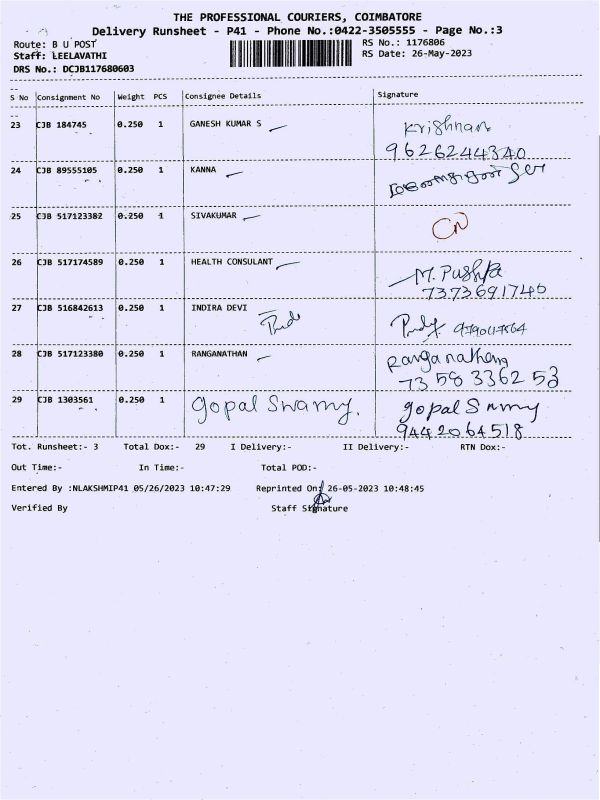 THE PROFESSIONAL COURIERS, COIMBATORE
Delivery Runsheet - P41 - Phone No.:0422-3505555 - Page No.:3
Route: B U POST
RS No.: 1176806
Staff: LEELAVATHI
RS Date: 26-May-2023
DRS No.: DCJB117680603
S No Consignment No Weight PCS Consignee Details Signature
23 CJB 184745 0.250 1 GANESH KUMAR S Krishnan
9626244340
24 CJB 89555105 0.250 1 KANNA
25 CJB 517123382 0.250 1 SIVAKUMAR CN
26 CJB 517174589 0.250 1 HEALTH CONSULANT M. Pushpa
7373691740
27 CJB 516842613 0.250 1 INDIRA DEVI
28 CJB 517123380 0.250 1 RANGANATHAN Ranganathan
73 58 3362 53
29 CJB 1303561 0.250 1 Gopal Swamy. gopal Swmy
9442064518
Tot. Runsheet:- 3 Total Dox:- 29 I Delivery:- II Delivery:- RTN Dox:-
Out Time:- In Time:- Total POD:-
Entered By :NLAKSHMIP41 05/26/2023 10:47:29 Reprinted On: 26-05-2023 10:48:45
Verified By Staff Signature